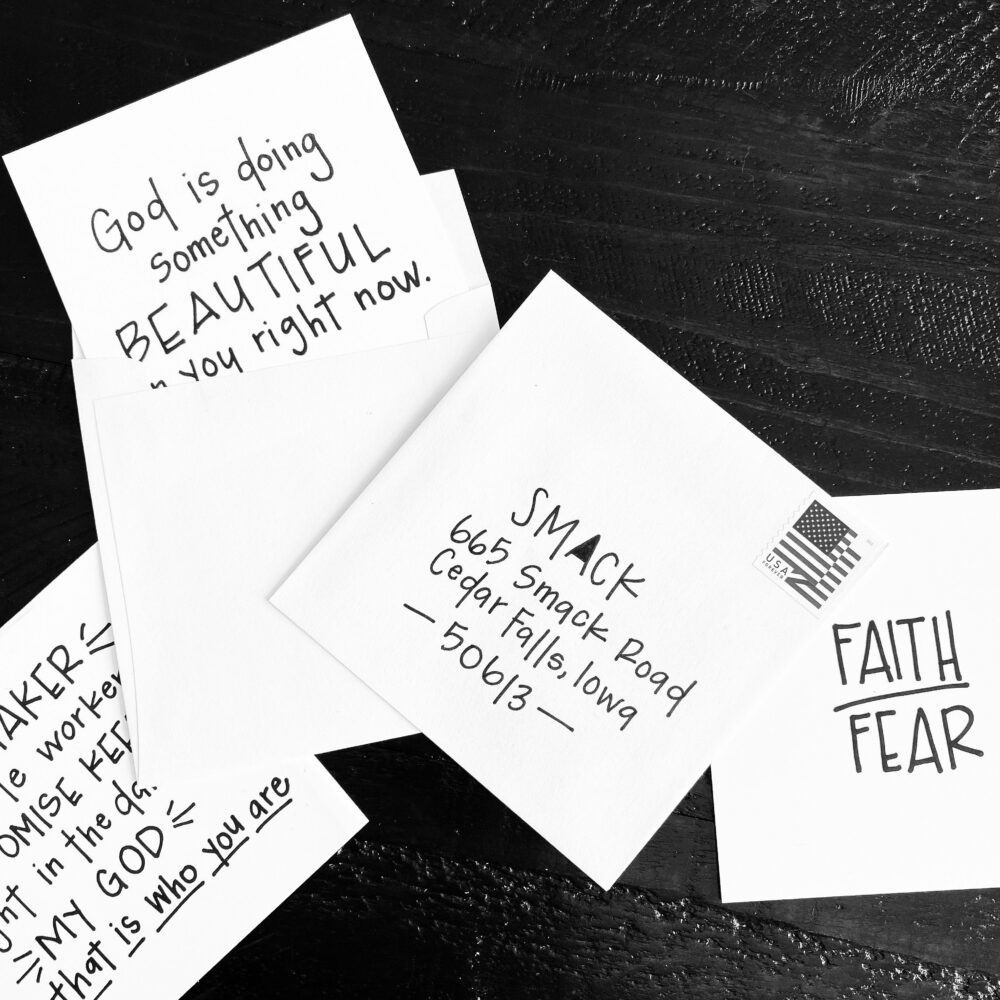 God is doing
something
BEAUTIFUL
you right now.
SMACK
665 Smack Road
Cedar Falls, Iowa
— 50613 —
USA
FOREVER
FAITH
FEAR
le worker
OMISE KEE
in the da
MY GOD
that is who you are